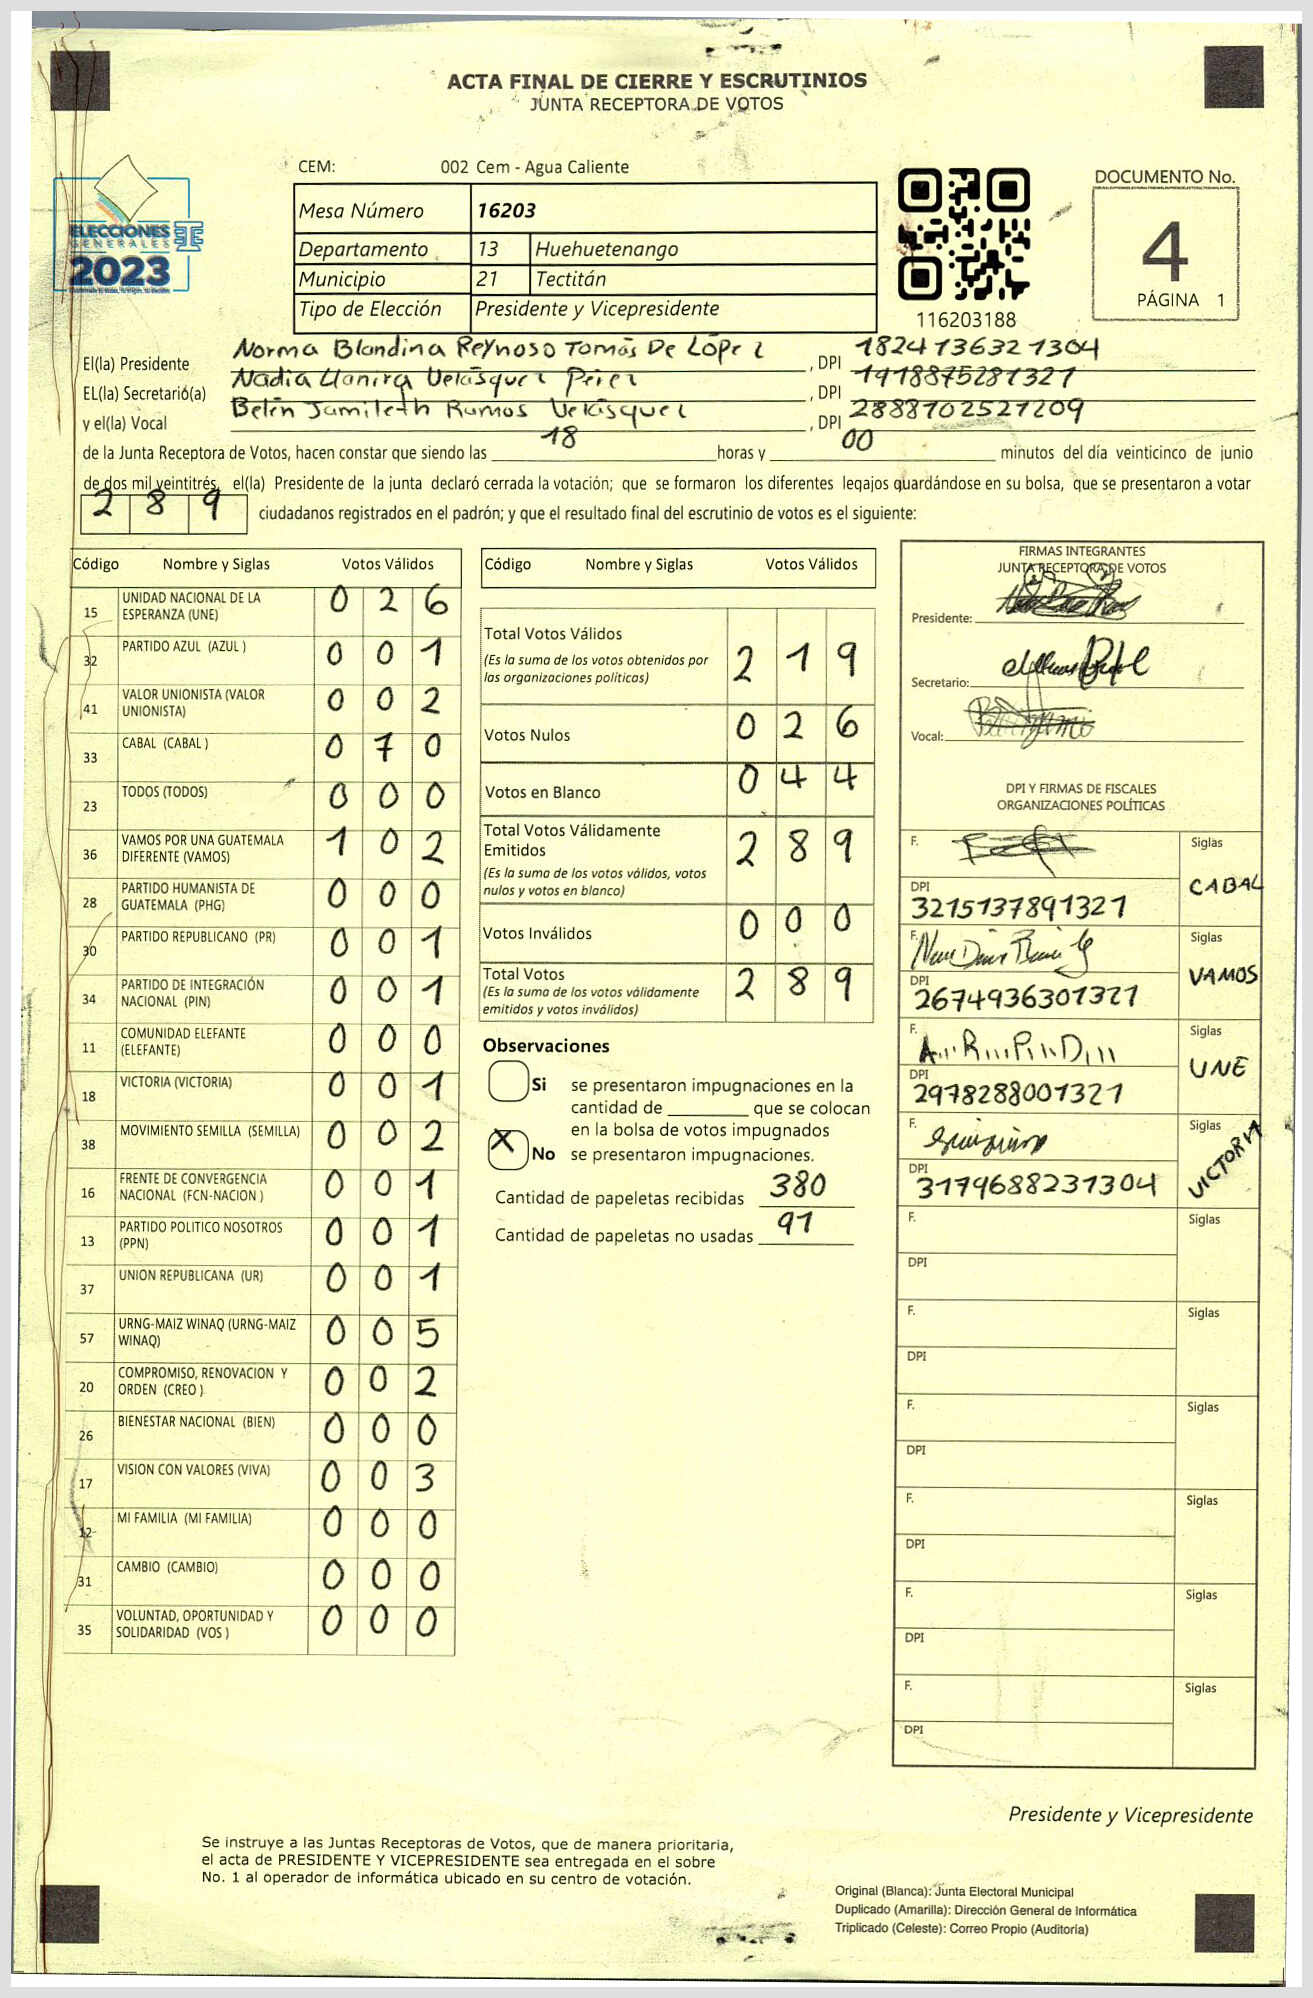 ACTA FINAL DE CIERRE Y ESCRUTINIOS
JUNTA RECEPTORA DE VOTOS
CEM: 002 Cem - Agua Caliente
DOCUMENTO No.
4
PÁGINA 1
ELECCIONES
GENERALES
2023
Mesa Número 16203
Departamento 13 Huehuetenango
Municipio 21 Tectitán
Tipo de Elección Presidente y Vicepresidente
116203188
El(la) Presidente Norma Blandina Reynoso Tomás De López , DPI 1824136321304
EL(la) Secretario(a) Nadia Velásquez Pérez , DPI 1918875281321
y el(la) Vocal Belén Jamileth Ramos Velásquez , DPI 2888102521209
de la Junta Receptora de Votos, hacen constar que siendo las 18 horas y 00 minutos del día veinticinco de junio
de dos mil veintitrés, el(la) Presidente de la junta declaró cerrada la votación; que se formaron los diferentes legajos guardándose en su bolsa, que se presentaron a votar
289 ciudadanos registrados en el padrón; y que el resultado final del escrutinio de votos es el siguiente:
Código Nombre y Siglas Votos Válidos
15 UNIDAD NACIONAL DE LA ESPERANZA (UNE) 0 2 6
32 PARTIDO AZUL (AZUL ) 0 0 1
41 VALOR UNIONISTA (VALOR UNIONISTA) 0 0 2
33 CABAL (CABAL ) 0 7 0
23 TODOS (TODOS) 0 0 0
36 VAMOS POR UNA GUATEMALA DIFERENTE (VAMOS) 1 0 2
28 PARTIDO HUMANISTA DE GUATEMALA (PHG) 0 0 0
30 PARTIDO REPUBLICANO (PR) 0 0 1
34 PARTIDO DE INTEGRACIÓN NACIONAL (PIN) 0 0 1
11 COMUNIDAD ELEFANTE (ELEFANTE) 0 0 0
18 VICTORIA (VICTORIA) 0 0 1
38 MOVIMIENTO SEMILLA (SEMILLA) 0 0 2
16 FRENTE DE CONVERGENCIA NACIONAL (FCN-NACION ) 0 0 1
13 PARTIDO POLITICO NOSOTROS (PPN) 0 0 1
37 UNION REPUBLICANA (UR) 0 0 1
57 URNG-MAIZ WINAQ (URNG-MAIZ WINAQ) 0 0 5
20 COMPROMISO, RENOVACION Y ORDEN (CREO ) 0 0 2
26 BIENESTAR NACIONAL (BIEN) 0 0 0
17 VISION CON VALORES (VIVA) 0 0 3
12 MI FAMILIA (MI FAMILIA) 0 0 0
31 CAMBIO (CAMBIO) 0 0 0
35 VOLUNTAD, OPORTUNIDAD Y SOLIDARIDAD (VOS ) 0 0 0
Código Nombre y Siglas Votos Válidos
Total Votos Válidos 2 1 9
(Es la suma de los votos obtenidos por
las organizaciones políticas)
Votos Nulos 0 2 6
Votos en Blanco 0 4 4
Total Votos Válidamente
Emitidos 2 8 9
(Es la suma de los votos válidos, votos
nulos y votos en blanco)
Votos Inválidos 0 0 0
Total Votos 2 8 9
(Es la suma de los votos válidamente
emitidos y votos inválidos)
Observaciones
Si se presentaron impugnaciones en la
cantidad de ________ que se colocan
en la bolsa de votos impugnados
X No se presentaron impugnaciones.
Cantidad de papeletas recibidas 380
Cantidad de papeletas no usadas 91
FIRMAS INTEGRANTES
JUNTA RECEPTORA DE VOTOS
Presidente:
Secretario:
Vocal:
DPI Y FIRMAS DE FISCALES
ORGANIZACIONES POLÍTICAS
F. Siglas
CABAL
DPI
3215137891321
F. Siglas
VAMOS
DPI
2674936301321
F. Siglas
UNE
DPI
2978288001321
F. Siglas
VICTORIA
DPI
3179688231304
F. Siglas
DPI
F. Siglas
DPI
F. Siglas
DPI
F. Siglas
DPI
F. Siglas
DPI
F. Siglas
DPI
Presidente y Vicepresidente
Se instruye a las Juntas Receptoras de Votos, que de manera prioritaria,
el acta de PRESIDENTE Y VICEPRESIDENTE sea entregada en el sobre
No. 1 al operador de informática ubicado en su centro de votación.
Original (Blanca): Junta Electoral Municipal
Duplicado (Amarilla): Dirección General de Informática
Triplicado (Celeste): Correo Propio (Auditoría)